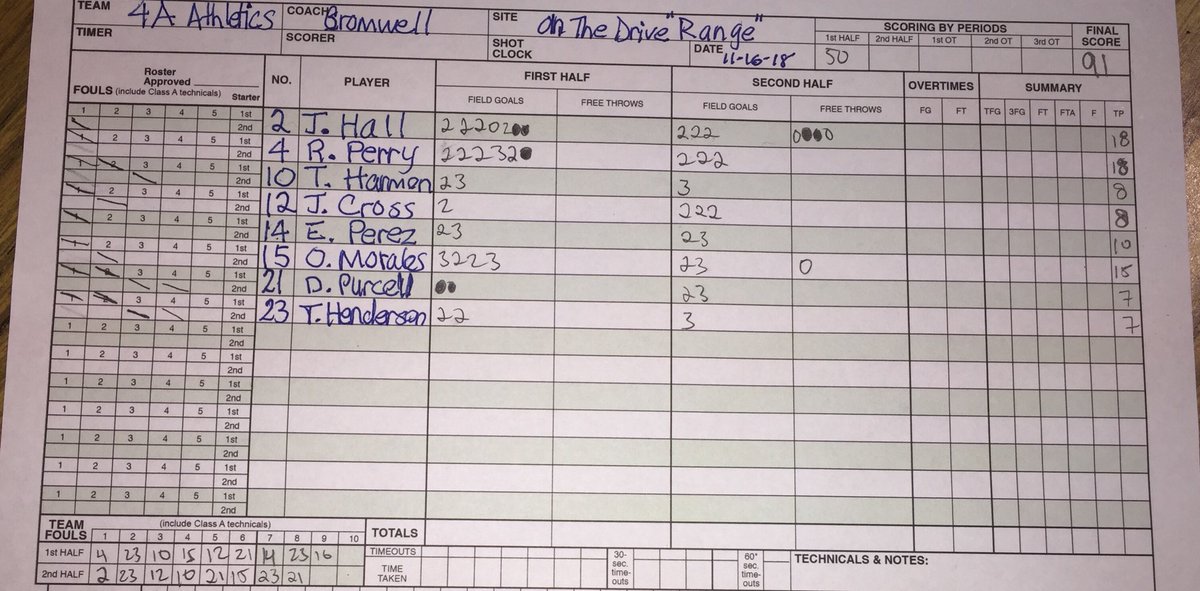 TEAM 4A Athletics COACH Bromwell SITE On The Drive "Range" SCORING BY PERIODS FINAL SCORE
1st HALF 2nd HALF 1st OT 2nd OT 3rd OT
TIMER SCORER SHOT CLOCK DATE 11-16-18 50 91
Roster Approved
FOULS (include Class A technicals) Starter NO. PLAYER FIRST HALF SECOND HALF OVERTIMES SUMMARY
FIELD GOALS FREE THROWS FIELD GOALS FREE THROWS FG FT TFG 3FG FT FTA F TP
1 2 3 4 5 1st 2nd 2 J. Hall 22202 222 18
1 2 3 4 5 1st 2nd 4 R. Perry 222232 222 18
1 2 3 4 5 1st 2nd 10 T. Harmon 23 3 8
1 2 3 4 5 1st 2nd 12 J. Cross 2 222 8
1 2 3 4 5 1st 2nd 14 E. Perez 23 23 10
1 2 3 4 5 1st 2nd 15 O. Morales 3223 23 0 15
1 2 3 4 5 1st 2nd 21 D. Purcell 23 7
1 2 3 4 5 1st 2nd 23 T. Henderson 22 3 7
1 2 3 4 5 1st
2nd
1 2 3 4 5 1st
2nd
1 2 3 4 5 1st
2nd
1 2 3 4 5 1st
2nd
1 2 3 4 5 1st
2nd
1 2 3 4 5 1st
2nd
1 2 3 4 5 1st
2nd
TEAM FOULS (include Class A technicals) TOTALS
1 2 3 4 5 6 7 8 9 10
1st HALF 4 23 10 15 12 21 14 23 16 TIMEOUTS 30-sec. time-outs 60" sec. time-outs TECHNICALS & NOTES:
2nd HALF 2 23 12 10 21 15 23 21 TIME TAKEN